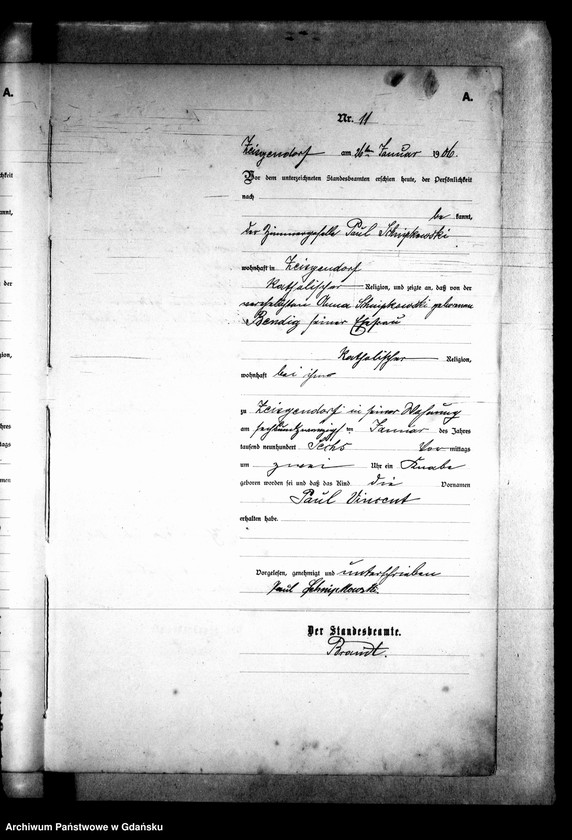 A.
A.
Nr. 11
Zeisgendorf am 26ten Januar 1906.
Vor dem unterzeichneten Standesbeamten erschien heute, der Persönlichkeit
nach
be kannt,
der Zimmergeselle Paul Schnipkowski
wohnhaft in Zeisgendorf
katholischer Religion, und zeigte an, daß von der
verehelichten Anna Schnipkowski geborenen
Bendig seiner Ehefrau
katholischer Religion,
wohnhaft bei ihm
zu Zeisgendorf in seiner Wohnung
am sechsundzwanzigsten Januar des Jahres
tausend neunhundert Sechs Vor mittags
um zwei Uhr ein Knabe
geboren worden sei und daß das Kind die Vornamen
Paul Vincent
erhalten habe.
Vorgelesen, genehmigt und unterschrieben
Paul Schnipkowski.
Der Standesbeamte.
Brandt.
Archiwum Państwowe w Gdańsku